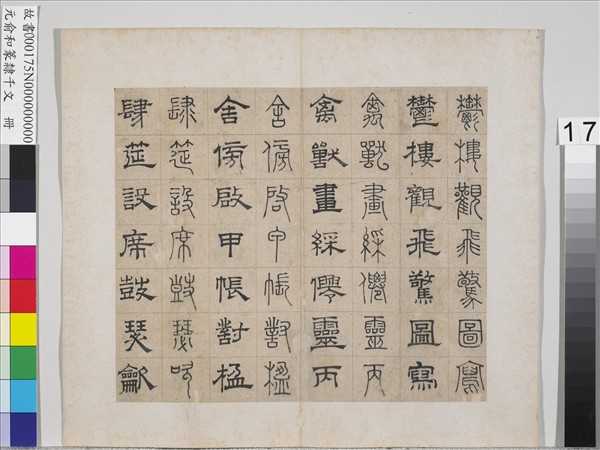 鬱樓觀飛驚圖寫
鬱樓觀飛驚圖寫
禽獸畫綵僊靈丙
禽獸畫綵僊靈丙
舍傍啟甲帳對楹
舍傍啟甲帳對楹
肆筵設席鼓瑟吹
肆筵設席鼓瑟龡
故書000175N000000000
元俞和篆隸千文 冊
17